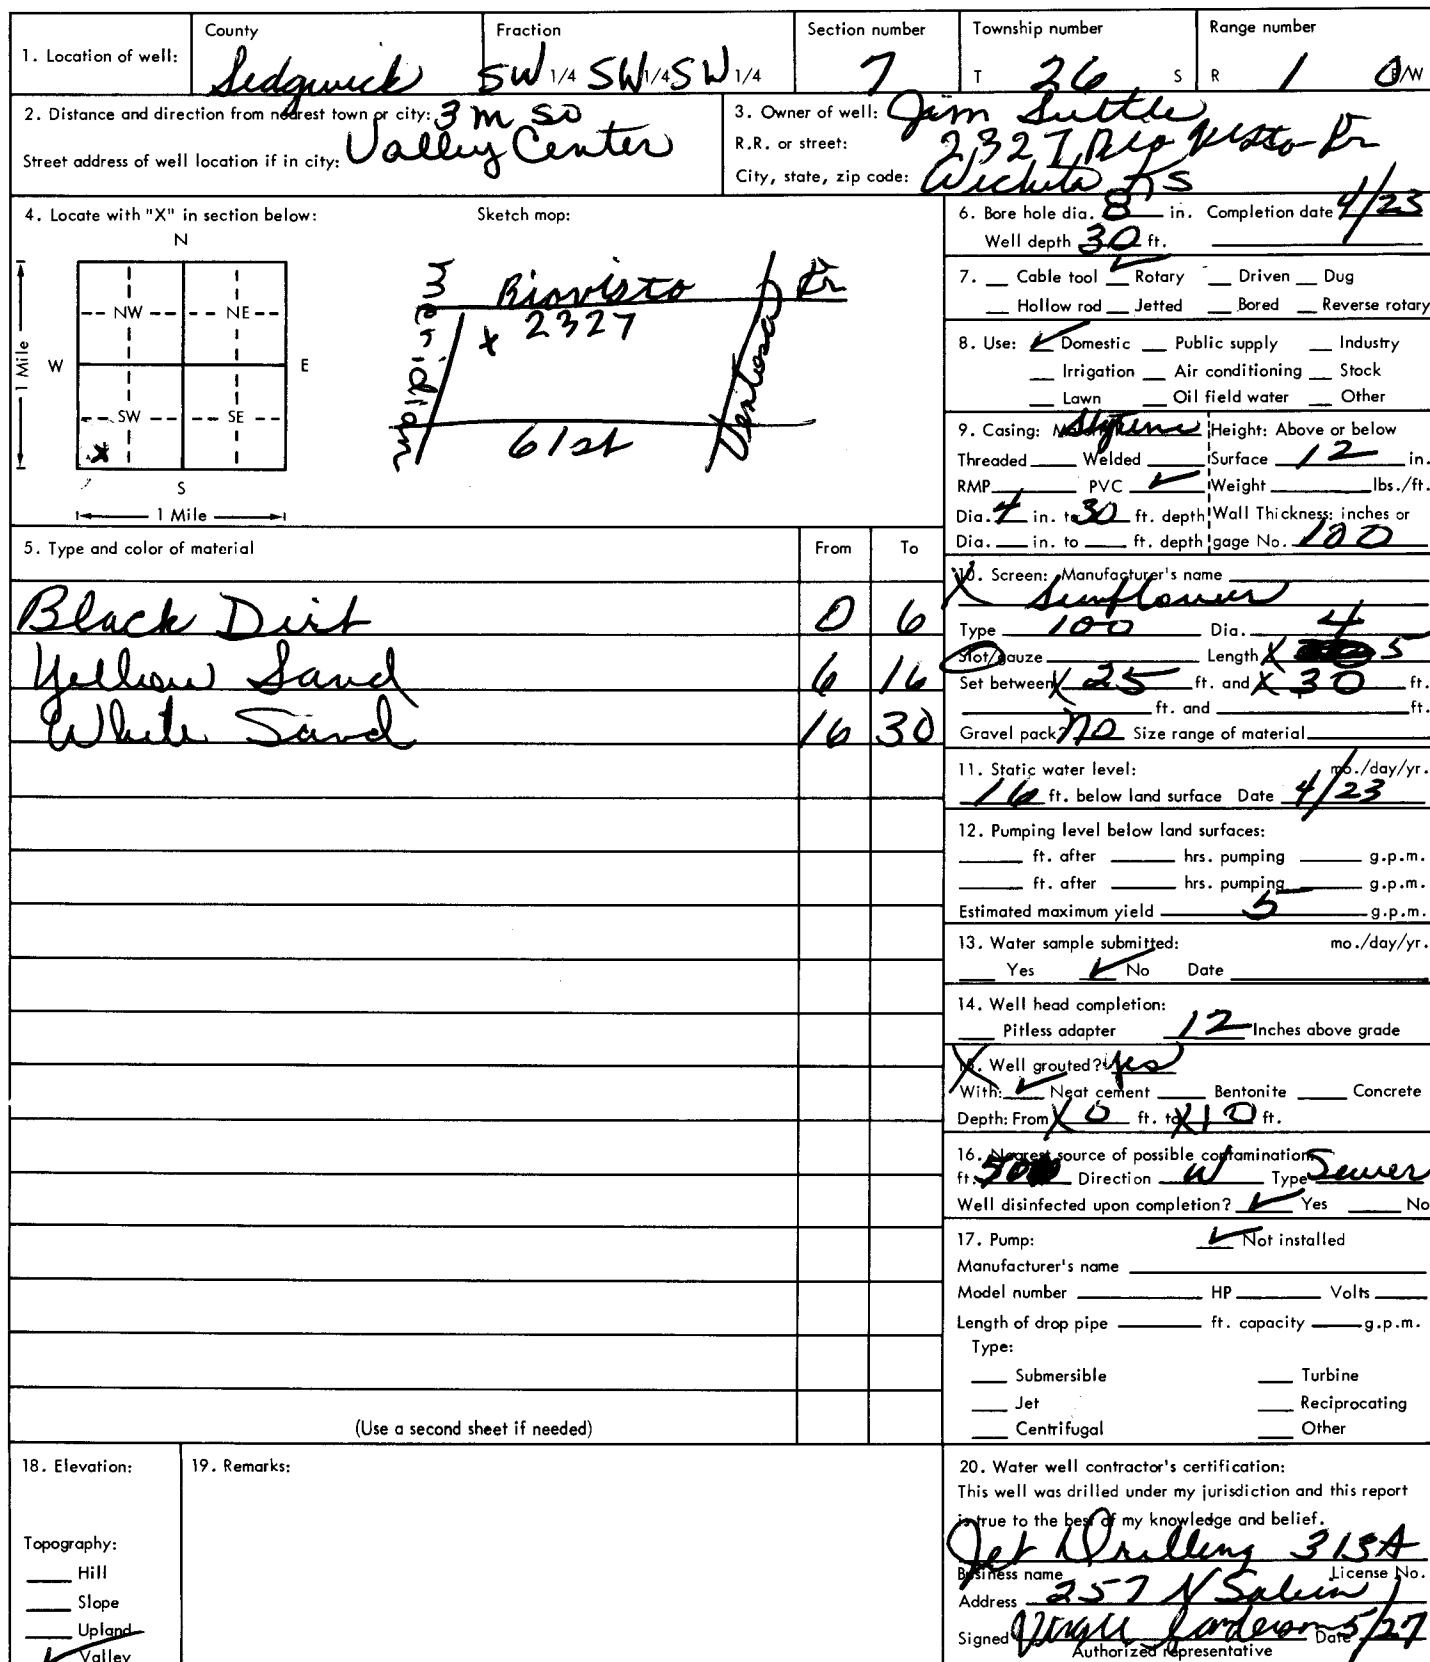 1. Location of well: County Sedgwick Fraction SW 1/4 SW 1/4 SW 1/4 Section number 7 Township number T 26 S Range number R 1 E/W
2. Distance and direction from nearest town or city: 3 m so
Valley Center
Street address of well location if in city:
3. Owner of well: Jim Suttle
R.R. or street: 2327 Rio Visto Dr
City, state, zip code: Wichita KS
4. Locate with "X" in section below:
N
NW NE
W E
SW SE
X
S
1 Mile
1 Mile
Sketch map:
Meridian
Riovisto Dr
x 2327
61st
6. Bore hole dia. 8 in. Completion date 4/23
Well depth 30 ft.
7. Cable tool ✓ Rotary Driven Dug
Hollow rod Jetted Bored Reverse rotary
8. Use: ✓ Domestic Public supply Industry
Irrigation Air conditioning Stock
Lawn Oil field water Other
9. Casing: Styrene Height: Above or below
Threaded Welded Surface 12 in.
RMP PVC ✓ Weight lbs./ft.
Dia. 4 in. to 30 ft. depth Wall Thickness: inches or
Dia. in. to ft. depth gage No. 100
5. Type and color of material From To
Black Dirt 0 6
Yellow Sand 6 16
White Sand 16 30
(Use a second sheet if needed)
10. Screen: Manufacturer's name
Sunflower
Type 100 Dia. 4
Slot/gauze Length X 5
Set between X 25 ft. and X 30 ft.
ft. and ft.
Gravel pack? no Size range of material
11. Static water level: mo./day/yr.
16 ft. below land surface Date 4/23
12. Pumping level below land surfaces:
ft. after hrs. pumping g.p.m.
ft. after hrs. pumping g.p.m.
Estimated maximum yield 5 g.p.m.
13. Water sample submitted: mo./day/yr.
Yes ✓ No Date
14. Well head completion:
Pitless adapter 12 Inches above grade
15. Well grouted? yes
With: ✓ Neat cement Bentonite Concrete
Depth: From X 0 ft. to X 10 ft.
16. Nearest source of possible contamination:
ft. 50 Direction W Type Sewer
Well disinfected upon completion? ✓ Yes No
17. Pump: ✓ Not installed
Manufacturer's name
Model number HP Volts
Length of drop pipe ft. capacity g.p.m.
Type:
Submersible Turbine
Jet Reciprocating
Centrifugal Other
18. Elevation:
Topography:
Hill
Slope
Upland
✓ Valley
19. Remarks:
20. Water well contractor's certification:
This well was drilled under my jurisdiction and this report
is true to the best of my knowledge and belief.
Jet Drilling 313A
Business name License No.
Address 257 N Salem
Signed Virgil Date 5/27
Authorized representative